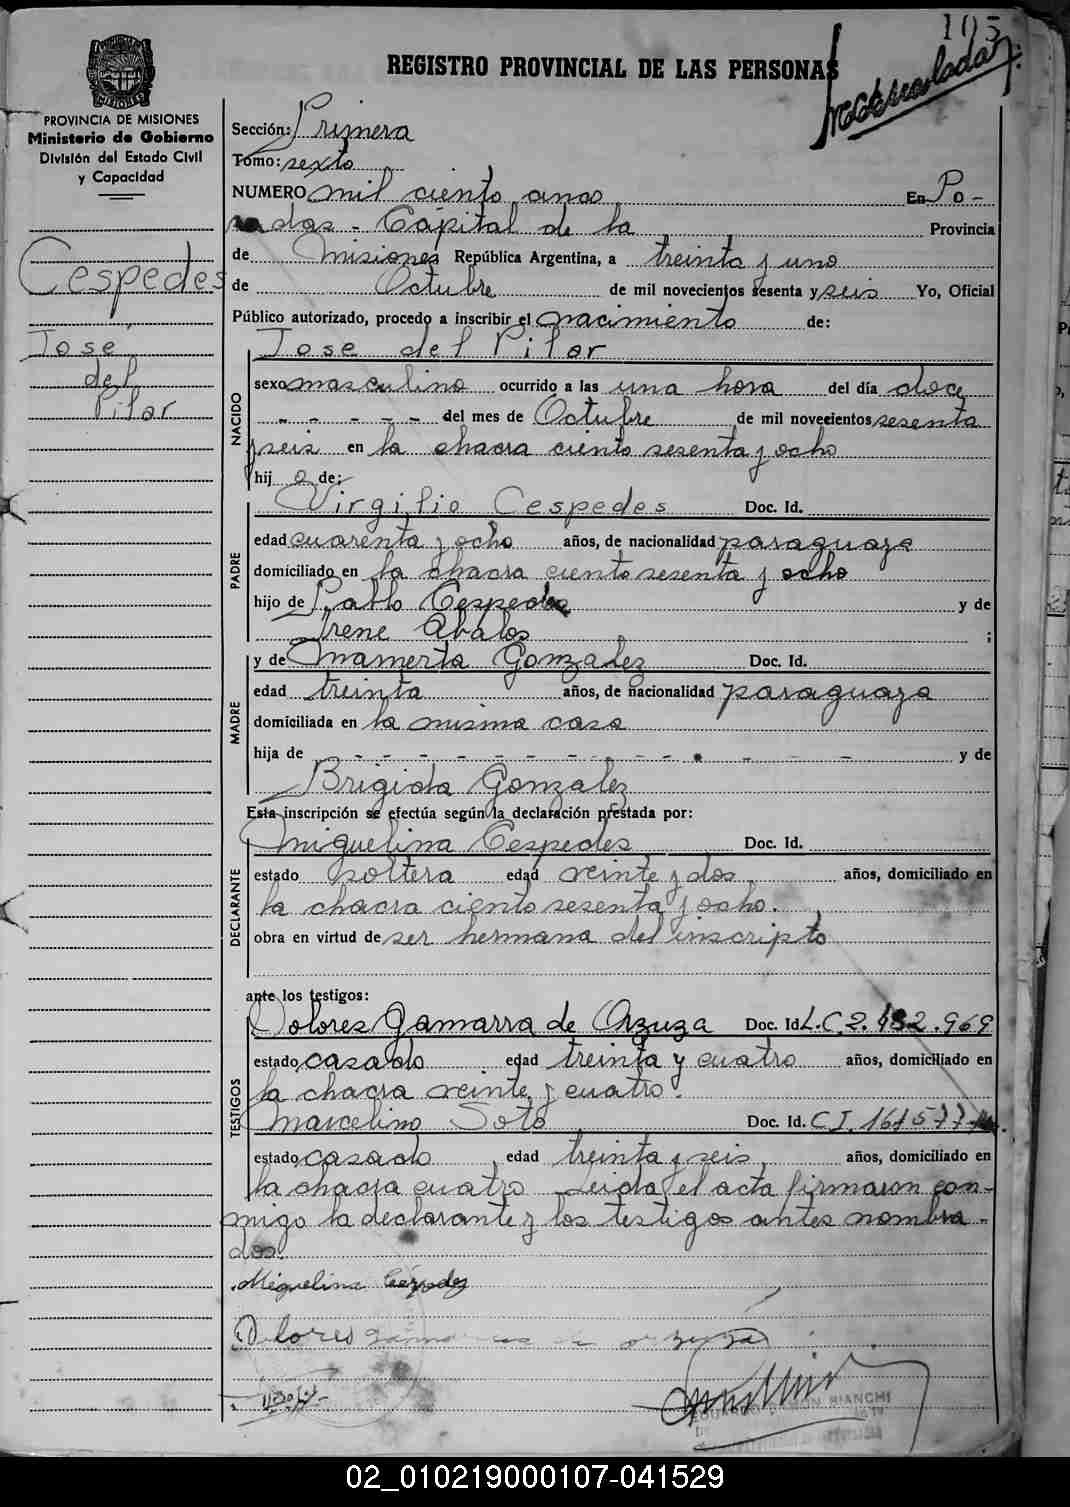 105
REGISTRO PROVINCIAL DE LAS PERSONAS
MISIONES
PROVINCIA DE MISIONES
Ministerio de Gobierno
División del Estado Civil
y Capacidad
Cespedes
José
del
Pilar
Sección: Primera
Tomo: sexto
NUMERO mil ciento cinco En Po-
sadas - Capital de la Provincia
de Misiones República Argentina, a treinta y uno
de Octubre de mil novecientos sesenta y seis Yo, Oficial
Público autorizado, procedo a inscribir el nacimiento de:
Jose del Pilar
NACIDO
sexo masculino ocurrido a las una hora del día doce
- - - - - del mes de Octubre de mil novecientos sesenta
y seis en la chacra ciento sesenta y ocho
hij o de:
Virgilio Cespedes Doc. Id.
PADRE
edad cuarenta y ocho años, de nacionalidad paraguaya
domiciliado en la chacra ciento sesenta y ocho
hijo de Pablo Cespedes y de
Irene Abalos ;
y de Mamerta Gonzalez Doc. Id.
MADRE
edad treinta años, de nacionalidad paraguaya
domiciliada en la misma casa
hija de - - - - - - - - - - - - y de
Brigida Gonzalez
Esta inscripción se efectúa según la declaración prestada por:
Miguelina Cespedes Doc. Id.
DECLARANTE
estado soltera edad veinte y dos años, domiciliado en
la chacra ciento sesenta y ocho.
obra en virtud de ser hermana del inscripto
ante los testigos:
Dolores Gamarra de Arzuza Doc. Id. L.C. 2.132.969
TESTIGOS
estado casado edad treinta y cuatro años, domiciliado en
la chacra veinte y cuatro.
Marcelino Soto Doc. Id. C.I. 161577
estado casado edad treinta y seis años, domiciliado en
la chacra cuatro Leida el acta firmaron con-
migo la declarante y los testigos antes nombra-
dos.
Miguelina Céspedez
Dolores
RAMON BIANCHI
02_010219000107-041529